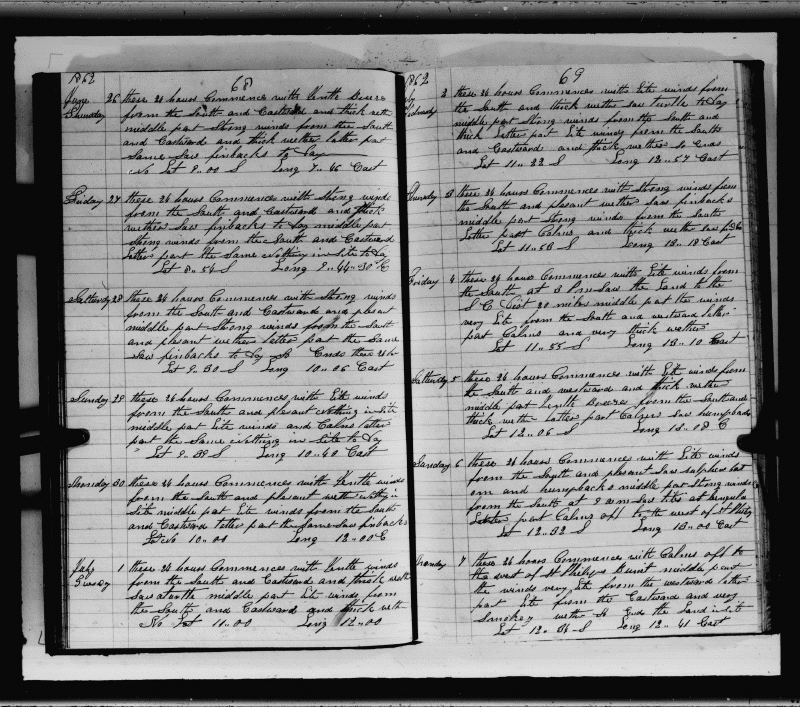 1862
68
June 26 these 24 hours Commence with Gentle
Thursday from the South and Eastward and thick weth
middle part Strong winds from the South
and Eastward and thick wether latter part
Same Saw finbacks to Day
No Lat 9"00 S Long 7"46 East
Friday 27 these 24 hours Commences with Strong winds
from the South and Eastward and thick
wether Saw finbacks to Day middle part
Strong winds from the South and Eastward
latter part the Same nothing in Site to Day
Lat 8"54 S Long 9"44"30 E
Satterday 28 these 24 hours Commences with Strong winds
from the South and Eastward and plesant
middle part Strong winds from the South
and plesant wether latter part the Same
Saw finbacks to Day So Ends these 24 h
Lat 9"30 S Long 10"06 East
Sunday 29 these 24 hours Commences with Lite winds
from the South and plesant nothing in Site
middle part Lite winds and Calms latter
part the Same nothing in Site to Day
Lat 9"39 S Long 10"40 East
Monday 30 these 24 hours Commences with Gentle winds
from the South and plesant weth nothing in
Site middle part Lite winds from the South
and Eastward latter part the Same Saw finbacks
Lat No 10"00 Long 12"00 E
July 1 these 24 hours Commences with Gentle winds
from the South and Eastward and thick weth
Saw a turtle middle part Lite winds from
the South and Eastward and thick weth
No Lat 11"00 Long 12"00
1862
69
2 these 24 hours Commences with Lite winds from
the South and thick wether saw turtle to Day
middle part Strong winds from the South and
thick Latter part Lite winds from the South
and Eastward and thick wether So Ends
Lat 11"22 S Long 12"57 East
Thursday 3 these 24 hours Commences with Strong winds from
the South and plesant wether Saw finbacks
middle part Strong winds from the South
Latter part Calms and thick wether saw
Lat 11"58 S Long 13"18 East
Friday 4 these 24 hours Commences with Lite winds from
the South at 3 Pm Saw the Land to the
S E Dist 20 miles middle part the winds
very Lite from the South and westward latter
part Calms and very thick wether
Lat 11"55 S Long 13"10 East
Satterday 5 these 24 hours Commences with Lite winds from
the South and westward and thick wether
middle part Gentle from the South and
thick wether latter part Calms Saw humpbacks
Lat 12"06 S Long 13"08 E
Sunday 6 these 24 hours Commences with Lite winds
from the South and plesant Saw sulpher bot
om and humpbacks middle part Strong winds
from the South at 9 am Saw
Latter part Calms off to the west of St Philip
Lat 12"32 S Long 13"00 East
Monday 7 these 24 hours Commences with Calms off to
the west of St Philips middle part
the winds very Lite from the westward latter
part Lite from the Eastward and very
Smokey weth So End the Land in site
Lat 12"34 S Long 12"41 East